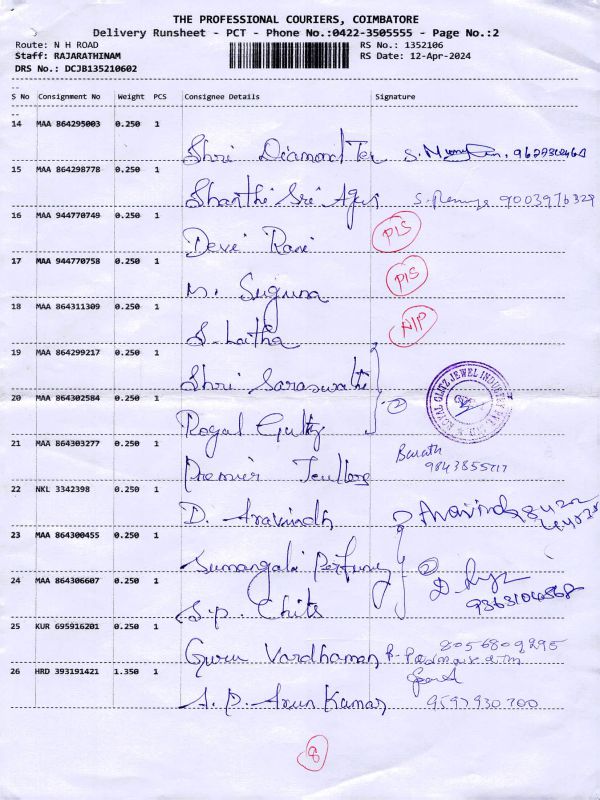 THE PROFESSIONAL COURIERS, COIMBATORE
Delivery Runsheet - PCT - Phone No.:0422-3505555 - Page No.:2
Route: N H ROAD RS No.: 1352106
Staff: RAJARATHINAM RS Date: 12-Apr-2024
DRS No.: DCJB135210602
S No Consignment No Weight PCS Consignee Details Signature
14 MAA 864295003 0.250 1
Shri Diamond
15 MAA 864298778 0.250 1
Shanthi Sri 9003976329
16 MAA 944770749 0.250 1
Devi Rani P1S
17 MAA 944770758 0.250 1
M. Suguna P1S
18 MAA 864311309 0.250 1
S. Laitha N1P
19 MAA 864299217 0.250 1
Shri Saraswathi
20 MAA 864302584 0.250 1
Royal 2
ROYAL GLITZ JEWEL INDUSTRY
21 MAA 864303277 0.250 1
Premier Barath
22 NKL 3342398 0.250 1
D. Aravindh Aravindh
23 MAA 864300455 0.250 1
Sumangali 2
24 MAA 864306607 0.250 1
S.P. Chits
25 KUR 695916201 0.250 1
Guru Vardhaman 8056809295
26 HRD 393191421 1.350 1
A.P. Arun Kumar 9597930700
8